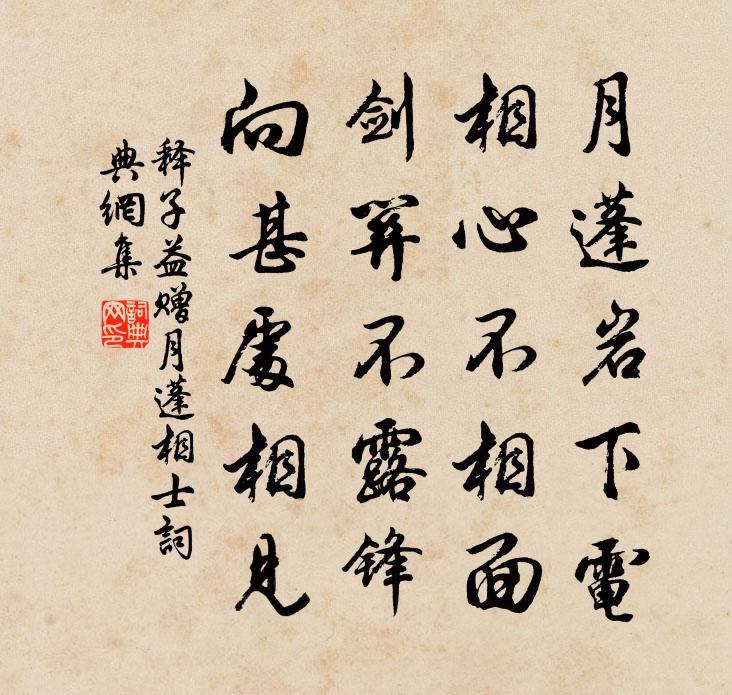 月蓬岩下電
相心不相面
剑笄不露鋒
向甚處相見
释子益赠月蓬相士詞
典網集
詞典
网印